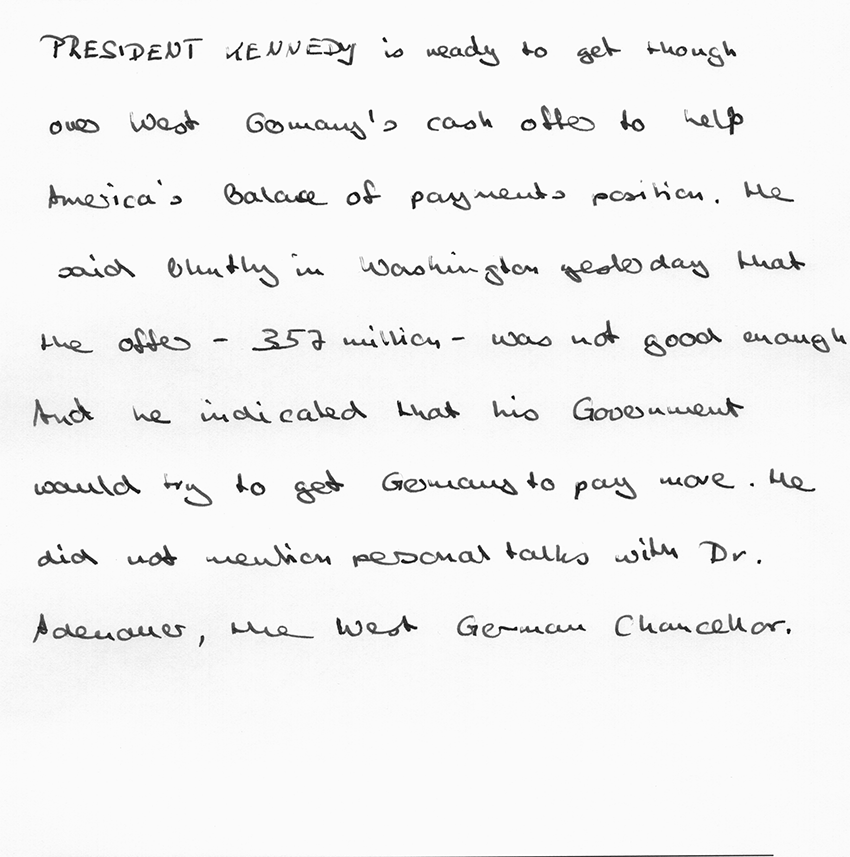 PRESIDENT KENNEDY is ready to get though
over West Germany's cash offer to help
America's Balance of payments position. He
said bluntly in Washington yesterday that
the offer - 357 million - was not good enough
And he indicated that his Government
would try to get Germany to pay more. He
did not mention personal talks with Dr.
Adenauer, the West German Chancellor.